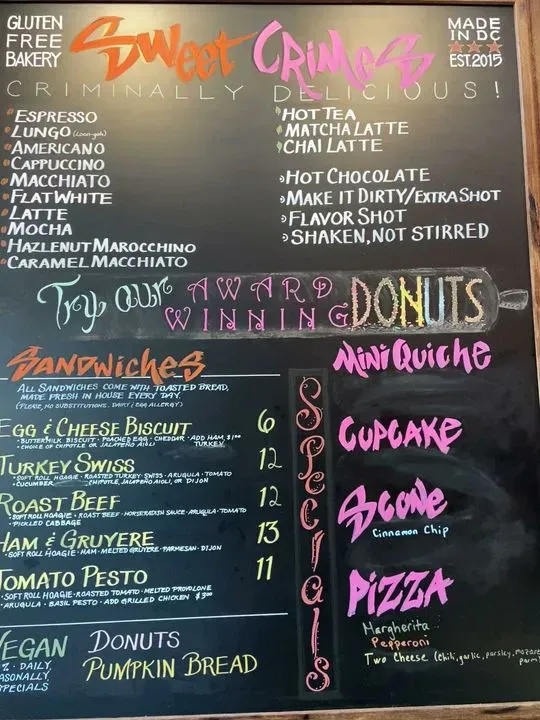 GLUTEN
FREE
BAKERY
Sweet Crimes
MADE
IN DC
EST. 2015
CRIMINALLY DELICIOUS!
ESPRESSO
LUNGO (Loon-goh)
AMERICANO
CAPPUCCINO
MACCHIATO
FLAT WHITE
LATTE
MOCHA
HAZLENUT MAROCCHINO
CARAMEL MACCHIATO
HOT TEA
MATCHA LATTE
CHAI LATTE
HOT CHOCOLATE
MAKE IT DIRTY/EXTRA SHOT
FLAVOR SHOT
SHAKEN, NOT STIRRED
Try our AWARD
WINNING DONUTS
SANDWICHES
ALL SANDWICHES COME WITH TOASTED BREAD,
MADE FRESH IN HOUSE EVERY DAY.
(PLEASE, NO SUBSTITUTIONS. DAIRY / EGG ALLERGY)
EGG & CHEESE BISCUIT 6
• BUTTERMILK BISCUIT • POACHED EGG • CHEDDAR • ADD HAM, $1.00
• CHOICE OF CHIPOTLE OR JALAPENO AIOLI TURKEY
TURKEY SWISS 12
• SOFT ROLL HOAGIE • ROASTED TURKEY • SWISS • ARUGULA • TOMATO
• CUCUMBER CHIPOTLE, JALAPENO AIOLI, OR DIJON
ROAST BEEF 12
• SOFT ROLL HOAGIE • ROAST BEEF • HORSERADISH SAUCE • ARUGULA • TOMATO
• PICKLED CABBAGE
HAM & GRUYERE 13
• SOFT ROLL HOAGIE • HAM • MELTED GRUYERE • PARMESAN • DIJON
TOMATO PESTO 11
• SOFT ROLL HOAGIE • ROASTED TOMATO • MELTED PROVOLONE
• ARUGULA • BASIL PESTO • ADD GRILLED CHICKEN $3.00
VEGAN
% • DAILY,
SEASONALS
SPECIALS
DONUTS
PUMPKIN BREAD
SPECIALS
MINI QUICHE
CUPCAKE
SCONE
Cinnamon Chip
PIZZA
Margherita
Pepperoni
Two Cheese (Chili, garlic, parsley, mozare
parm